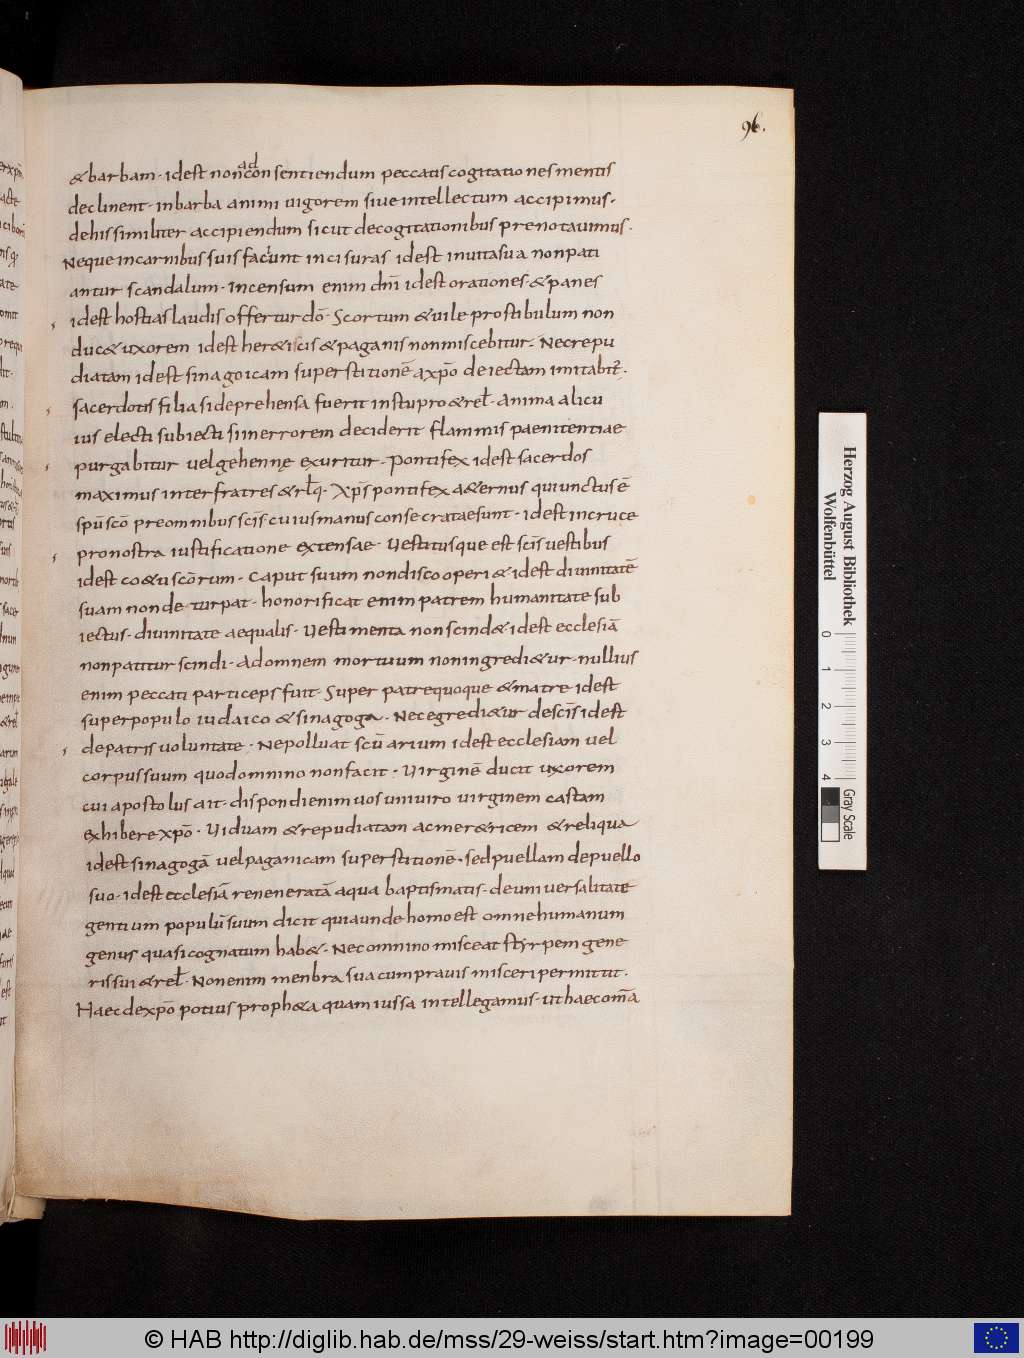 96.
& barbam · idest non ad consentiendum peccatis cogitationes mentis
declinent · in barba animi uigorem siue intellectum accipimus ·
de his similiter accipiendum sicut de cogitationibus prenotauimus ·
Neque in carnibus suis faciunt incisuras idest in uita sua non pati
antur scandalum · incensum enim dn̄i idest orationes · & panes
idest hostias laudis offertur dō · Scortum & uile prostibulum non
duc& uxorem idest her&icis & paganis non miscebitur · Nec repu
diatam idest sinagoicam superstitionē a xp̄o deiectam imitabit᷑ ·
sacerdotis filia si deprehensa fuerit in stupro & rel̄ · anima alicu
ius electi subiecti si in errorem deciderit flammis paenitentiae
purgabitur uel gehennę exuritur · Pontifex idest sacerdos
maximus inter fratres & rl̄q · Xp̄s pontifex a&ernus qui unctus ē
sp̄u sc̄o pre omnibus sc̄is cuius manus consecratae sunt · idest in cruce
pro nostra iustificatione extensae · Uestitusque est sc̄is uestibus
idest co&u sc̄orum · caput suum non discooperi& idest diuinitatē
suam non deturpat · honorificat enim patrem humanitate sub
iectus · diuinitate aequalis · Uestimenta non scind& · idest ecclesiā
non patitur scindi · Ad omnem mortuum non ingredi&ur · nullius
enim peccati particeps fuit · Super patre quoque & matre idest
super populo iudaico & sinagoga · Nec egredi&ur de sc̄is idest
de patris uoluntate · Ne polluat sc̄uarium idest ecclesiam uel
corpus suum quod omnino non facit · Uirginē ducit uxorem
cui apostolus ait · dispondi enim uos uni uiro uirginem castam
exhibere xp̄o · Uiduam & repudiatam ac mer&ricem & reliqua
idest sinagogā uel paganicam superstitionē · sed puellam de puello
suo · idest ecclesiā reneneratā aqua baptismatis · de uniuersalitate
gentium populū suum dicit quia unde homo est omne humanum
genus quasi cognatum hab& · Nec omnino misceat styrpem gene
ris sui & rel̄ · Non enim menbra sua cum prauis misceri permittit ·
Haec de xp̄o potius proph&a quam iussa intellegamus · ut haec om̄a
Herzog August Bibliothek
Wolfenbüttel
0 1 2 3 4
Gray Scale
© HAB http://diglib.hab.de/mss/29-weiss/start.htm?image=00199